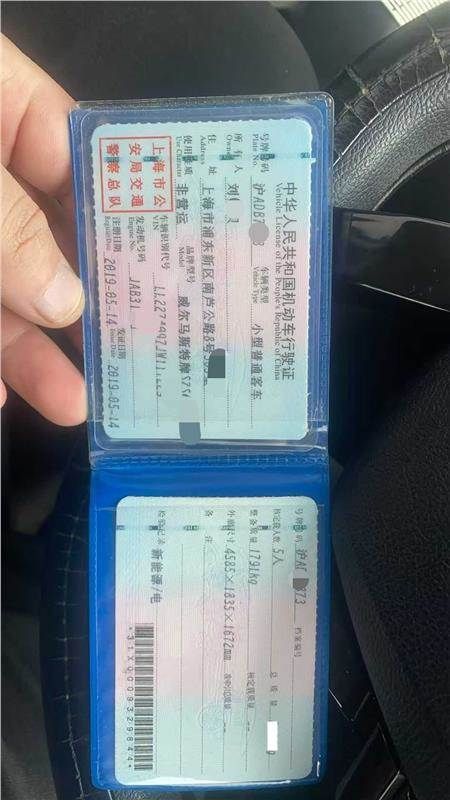 中华人民共和国机动车行驶证
Vehicle License of the People's Republic of China
号牌号码 沪ADB7 3 车辆类型 小型普通客车
Plate No. Vehicle Type
所有人 刘
Owner
住址 上海市浦东新区南芦公路8号
Address
使用性质 非营运 品牌型号 威尔马斯特牌
Use Character Model
上海市公
安局交通
警察总队
车辆识别代号
VIN
发动机号码 JAB31
Engine No.
注册日期 2019-05-14 发证日期 2019-05-14
Register Date Issue Date
号牌号码 沪AD 873 档案编号
核定载人数 5人 总质量
整备质量 1791kg 核定载质量
外廓尺寸 4585×1835×1672mm
备注
检验记录 新能源/电
*31X0009329844*